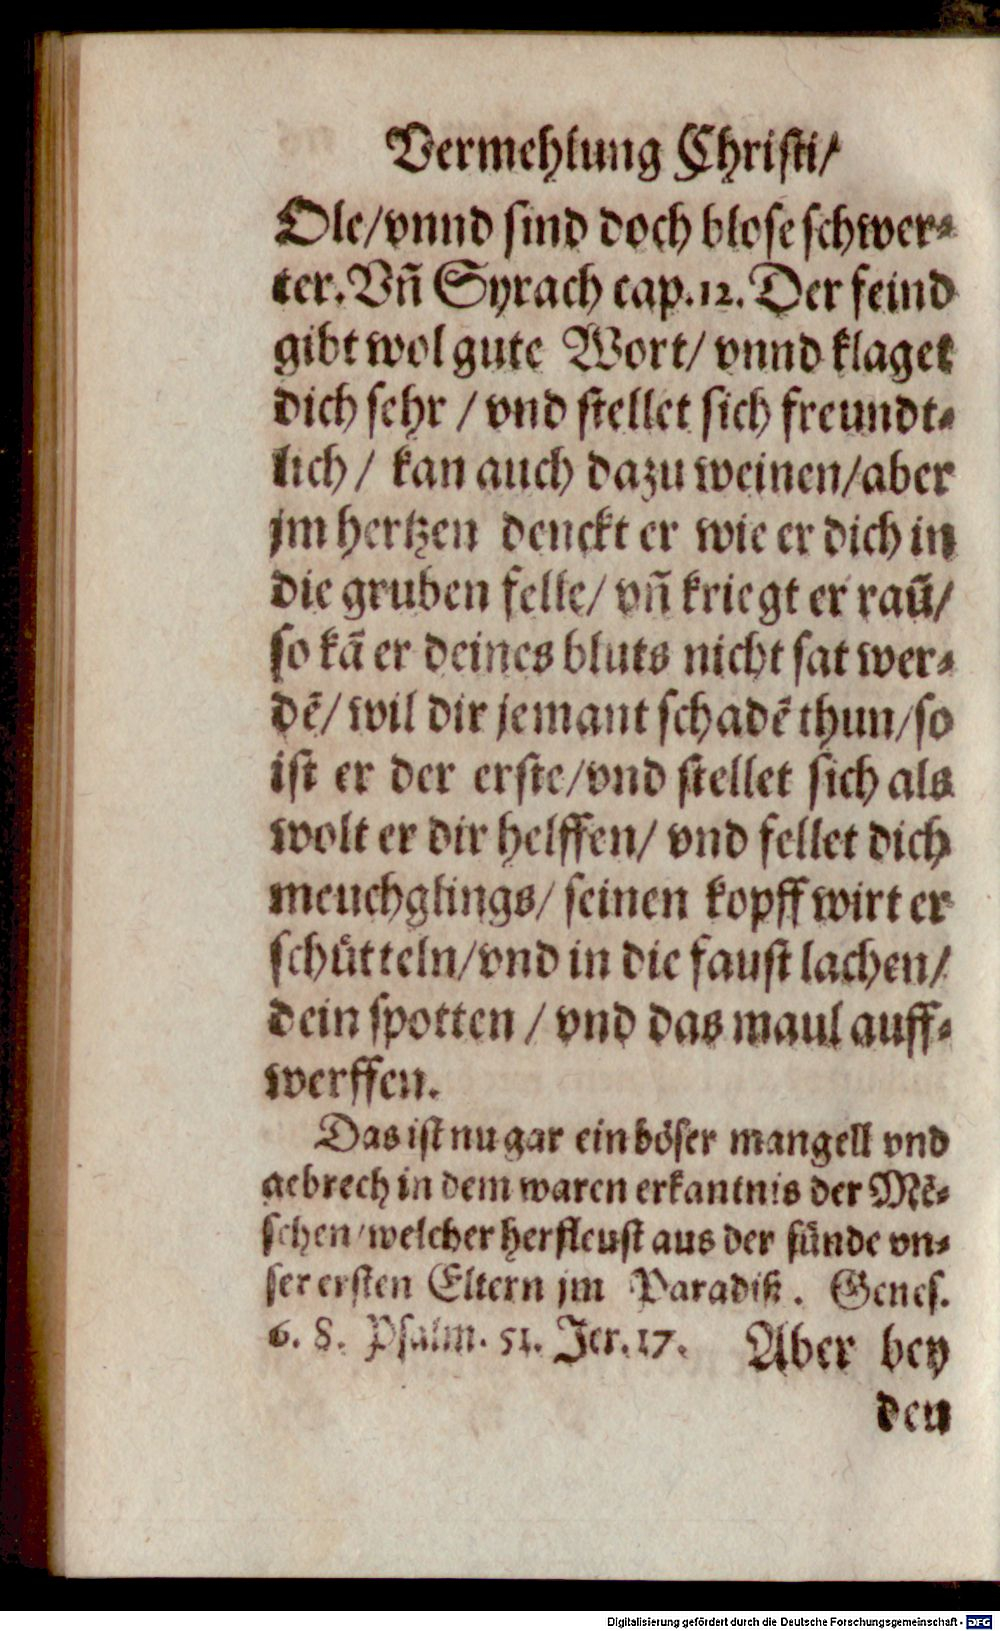 Vermehlung Christi/
Ole/vnnd sind doch blose schwer-
ter. Vñ Syrach cap. 12. Der feind
gibt wol gute Wort/ vnnd klaget
dich sehr / vnd stellet sich freundt-
lich / kan auch dazu weinen/aber
jm hertzen denckt er wie er dich in
die gruben felle/ vñ kriegt er raũ/
so kã er deines bluts nicht sat wer-
dẽ/ wil dir jemant schadẽ thun/so
ist er der erste/vnd stellet sich als
wolt er dir helffen/ vnd fellet dich
meuchglings/ seinen kopff wirt er
schuͤtteln/vnd in die faust lachen/
dein spotten / vnd das maul auff-
werffen.
Das ist nu gar ein boͤser mangell vnd
gebrech in dem waren erkantnis der Mẽ-
schen/welcher herfleust aus der suͤnde vn-
ser ersten Eltern jm Paradiß. Genes.
6. 8. Psalm. 51. Jer. 17. Aber bey
den
Digitalisierung gefördert durch die Deutsche Forschungsgemeinschaft - DFG